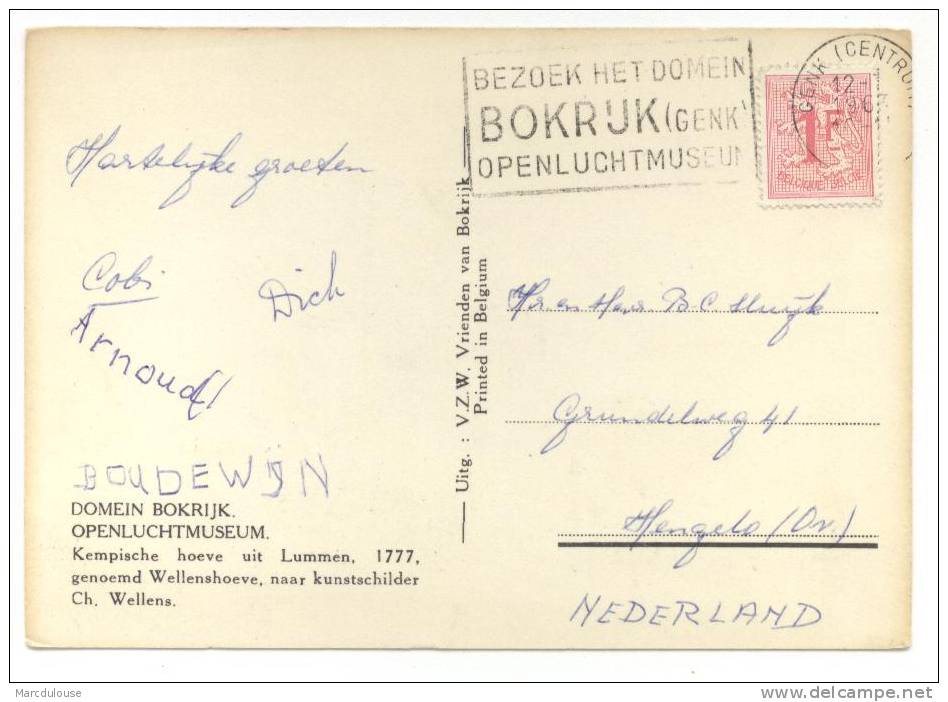 BEZOEK HET DOMEIN
BOKRIJK (GENK)
OPENLUCHTMUSEUM
GENK (CENTRUM)
12-
196
1F
BELGIQUE BELGIE
Hartelijke groeten
Cobi
Dick
Arnoud
BOUDEWIJN
DOMEIN BOKRIJK.
OPENLUCHTMUSEUM.
Kempische hoeve uit Lummen, 1777,
genoemd Wellenshoeve, naar kunstschilder
Ch. Wellens.
Uitg. : V.Z.W. Vrienden van Bokrijk
Printed in Belgium
Hr. en Mevr. B.C.
Grundelweg 41
Hengelo (Ov.)
NEDERLAND
Marcdulouse
www.delcampe.net